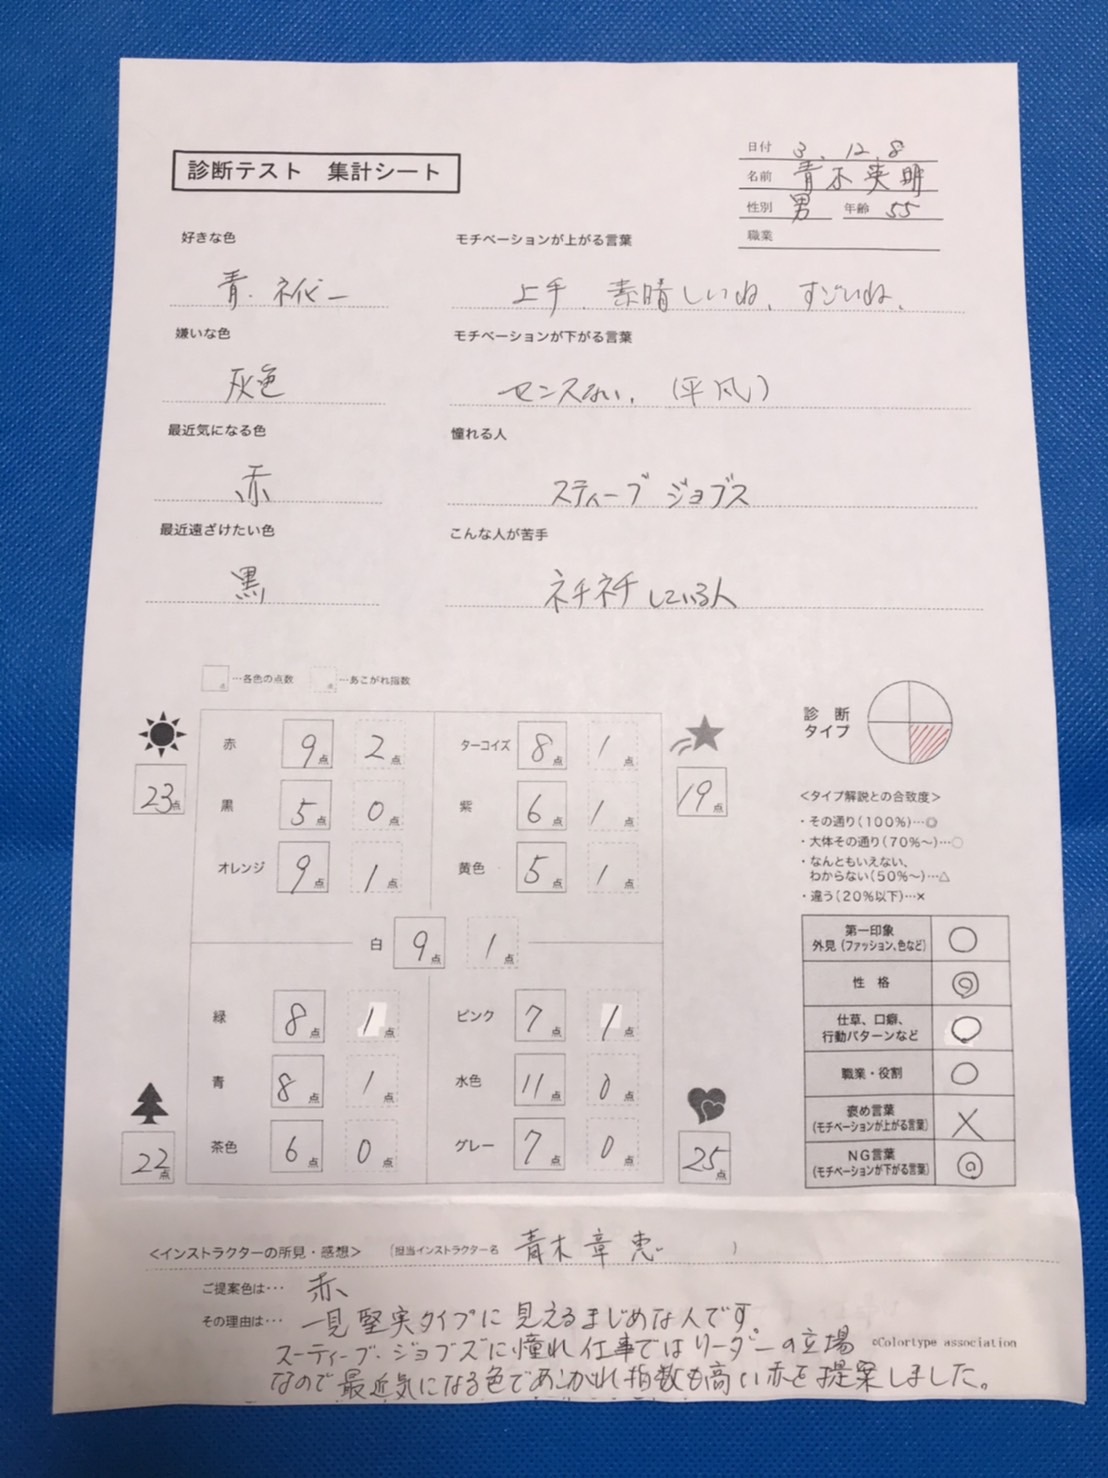 診断テスト 集計シート
日付 3.12.8
名前 青木英明
性別 男 年齢 55
職業
好きな色 モチベーションが上がる言葉
青. ネイビー 上手 素晴しいね、すごいね、
嫌いな色 モチベーションが下がる言葉
灰色 センスない. (平凡)
最近気になる色 憧れる人
赤 スティーブ ジョブス
最近遠ざけたい色 こんな人が苦手
黒 ネチネチしている人
…各色の点数 …あこがれ指数
診断タイプ
赤 9点 2点 ターコイズ 8点 1点
23点 19点
黒 5点 0点 紫 6点 1点
オレンジ 9点 1点 黄色 5点 1点
白 9点 1点
緑 8点 1点 ピンク 7点 1点
青 8点 1点 水色 11点 0点
茶色 6点 0点 グレー 7点 0点
22点 25点
<タイプ解説との合致度>
・その通り(100%)…◎
・大体その通り(70%~)…○
・なんともいえない、
わからない(50%~)…△
・違う(20%以下)…×
第一印象
外見(ファッション、色など) ○
性格 ◎
仕草、口癖、
行動パターンなど ○
職業・役割 ○
褒め言葉
(モチベーションが上がる言葉) ×
NG言葉
(モチベーションが下がる言葉) ◎
<インストラクターの所見・感想> (担当インストラクター名 青木章恵 )
ご提案色は… 赤、
その理由は… 一見堅実タイプに見えるまじめな人です
スーティーブ・ジョブズに憧れ仕事ではリーダーの立場
©Colortype association
なので最近気になる色であこがれ指数も高い赤を提案しました。